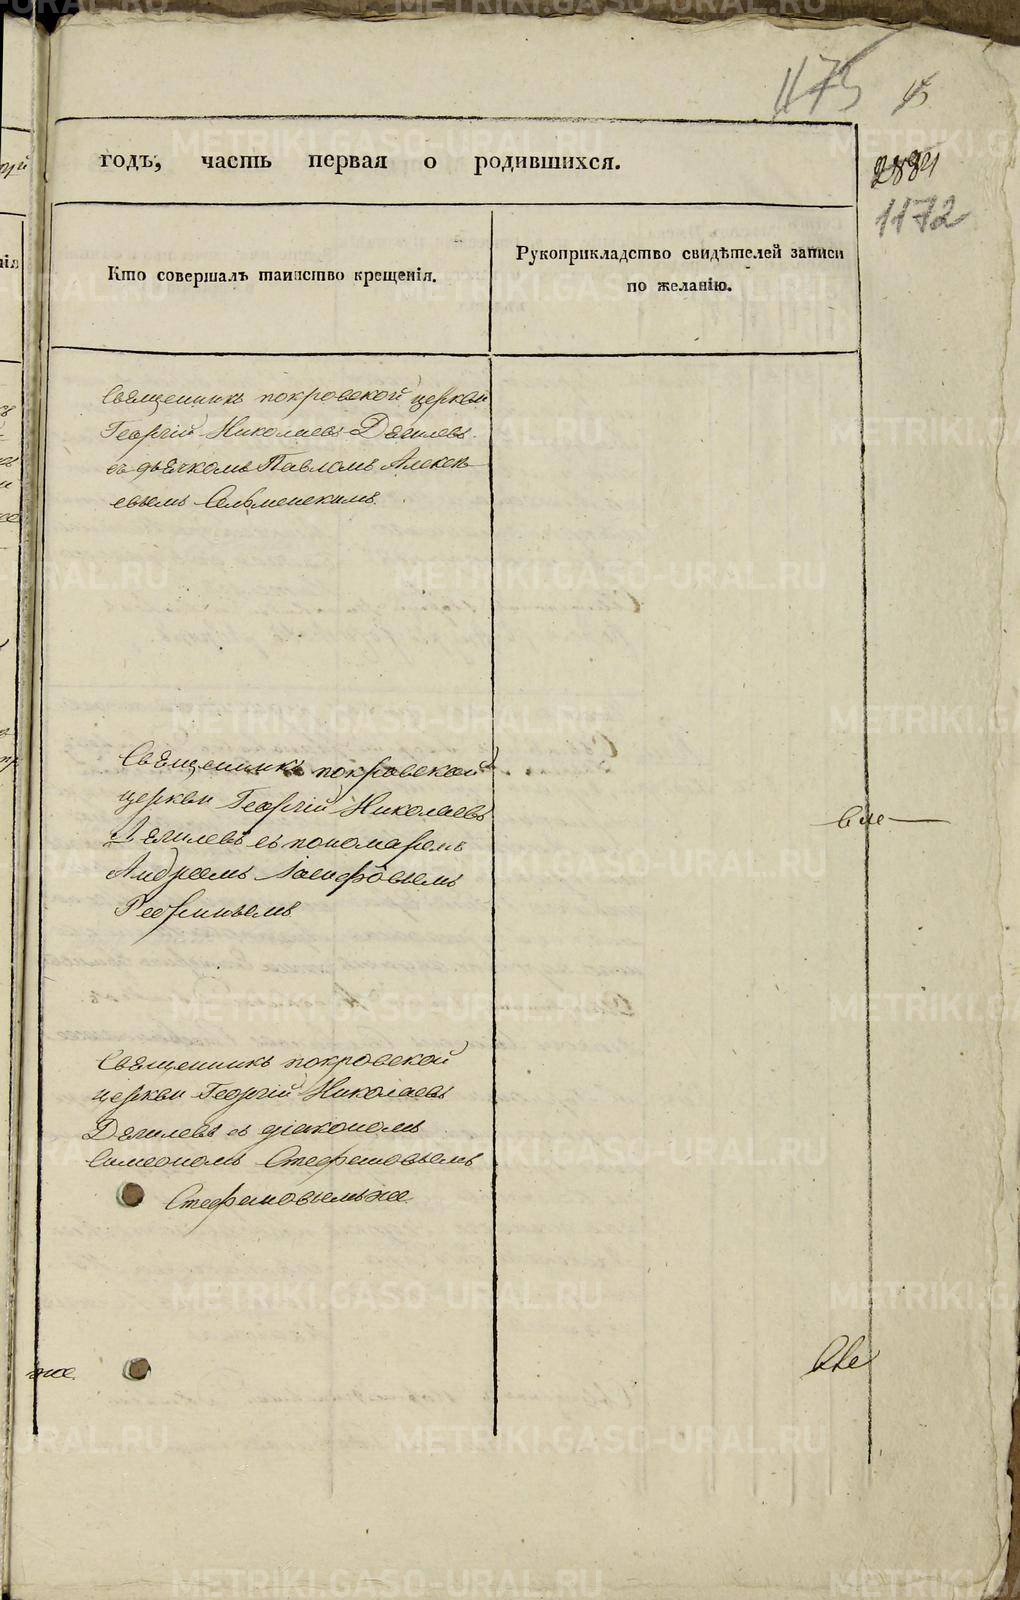 1175
2884
1172
годъ, часть первая о родившихся.
Кто совершалъ таинство крещенія.
Рукоприкладство свидѣтелей записи
по желанію.
Священникъ покровской церкви
Георгій Николаевъ Дягилевъ
съ дьячкомъ Павломъ Алексѣ
евымъ Сельменскимъ.
Священникъ покровской
церкви Георгій Николаевъ
Дягилевъ съ пономаремъ
Андреемъ Іосифовымъ
Священникъ покровской
церкви Георгій Николаевъ
Дягилевъ съ діакономъ
Симеономъ Стефановымъ
Стефановымъ же
METRIKI.GASO-URAL.RU